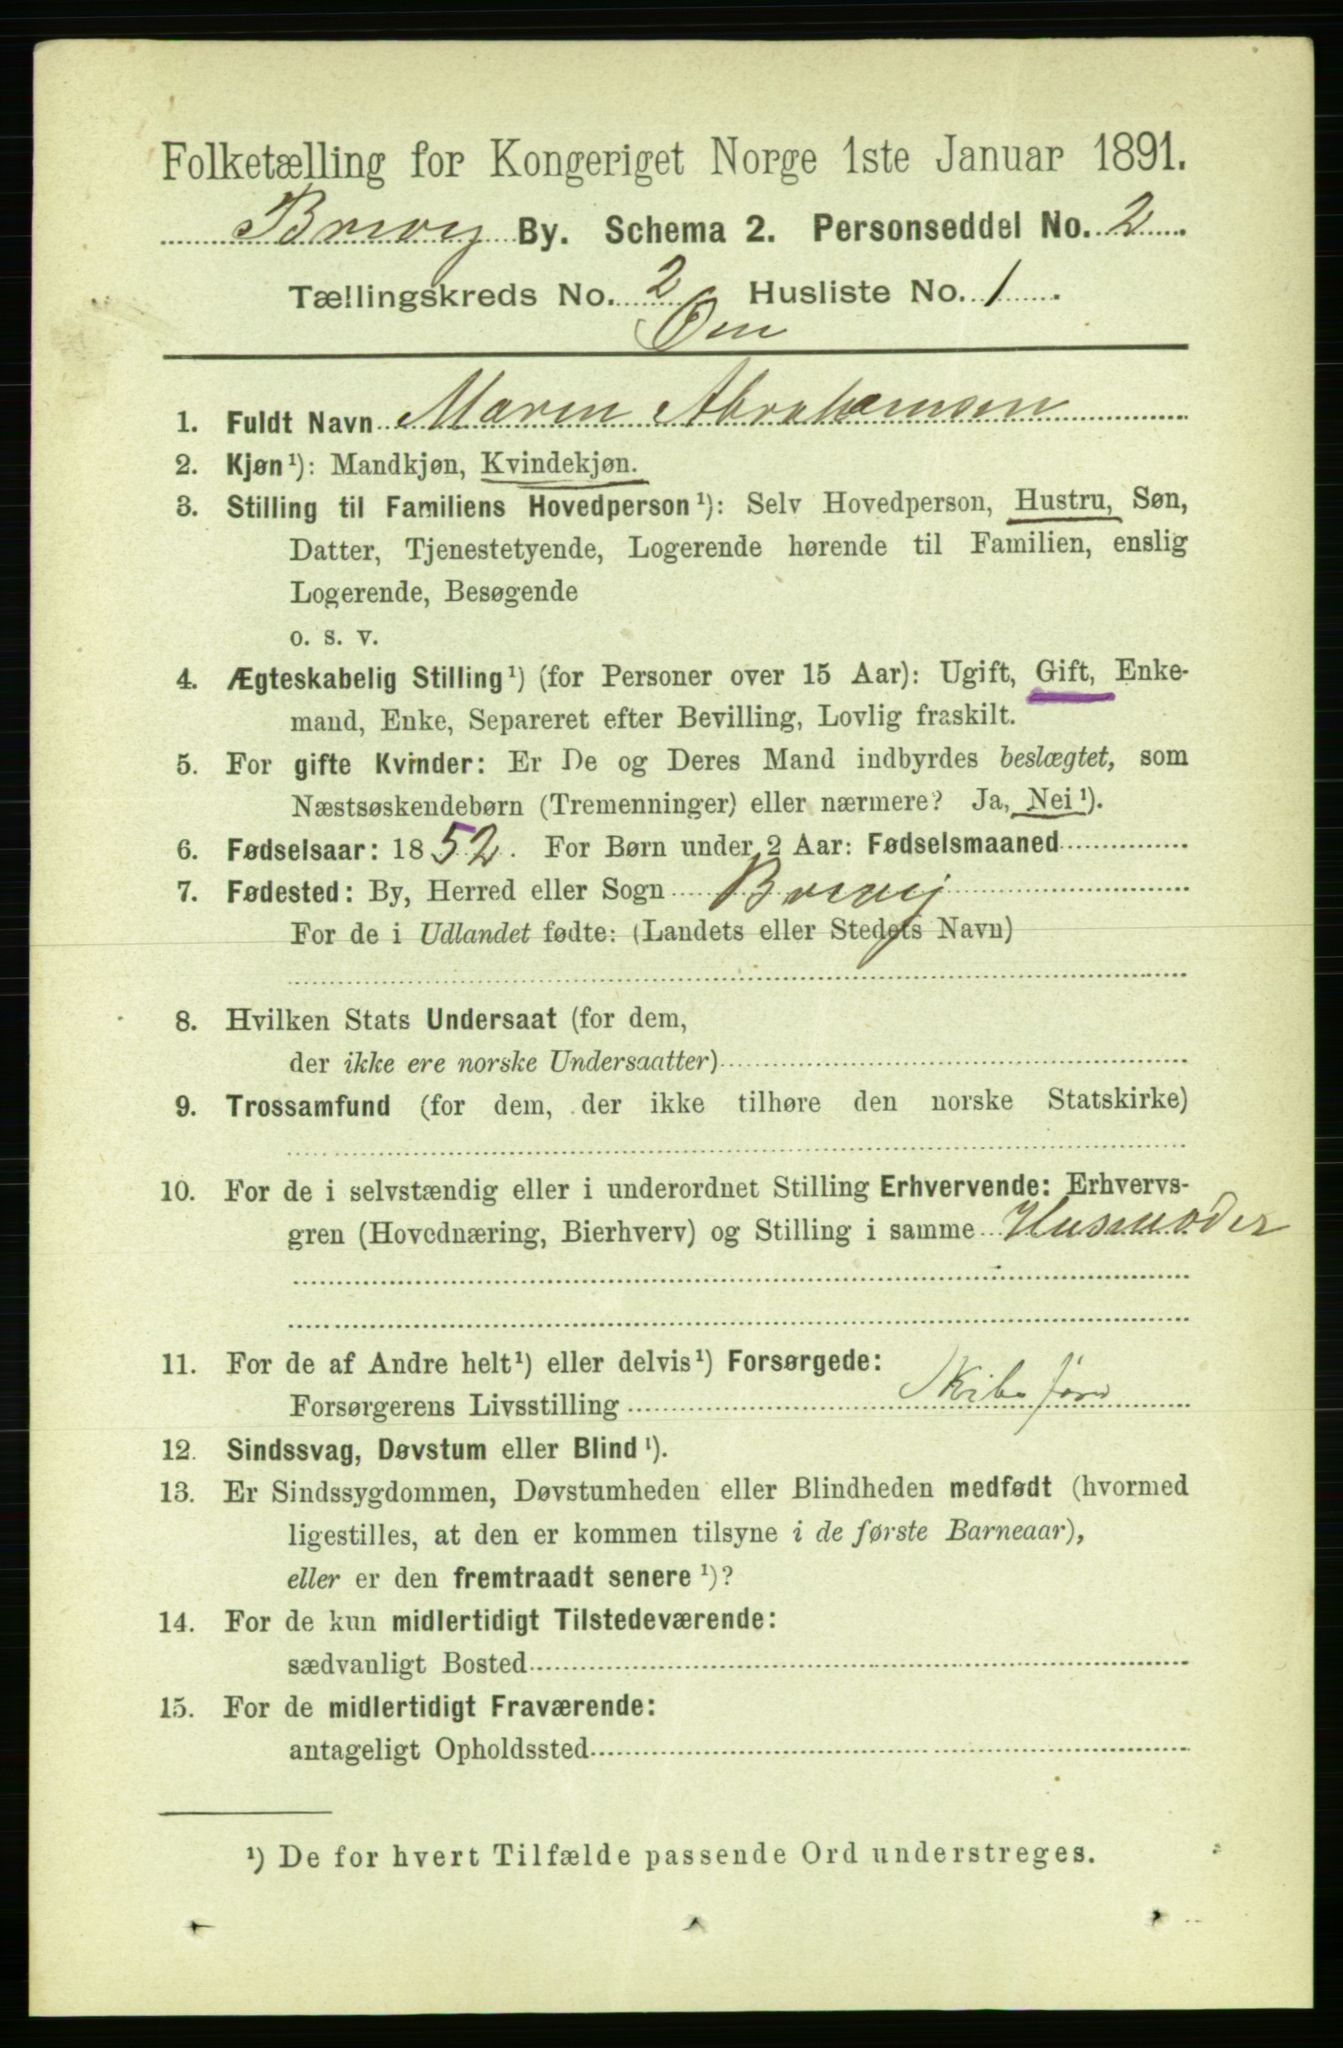 Folketælling for Kongeriget Norge 1ste Januar 1891.
Brevig By. Schema 2. Personseddel No. 2
Tællingskreds No. 2 Husliste No. 1
Øen
1. Fuldt Navn Maren Abrahamsen
2. Kjøn¹): Mandkjøn, Kvindekjøn.
3. Stilling til Familiens Hovedperson¹): Selv Hovedperson, Hustru, Søn,
Datter, Tjenestetyende, Logerende hørende til Familien, enslig
Logerende, Besøgende
o. s. v.
4. Ægteskabelig Stilling¹) (for Personer over 15 Aar): Ugift, Gift, Enke-
mand, Enke, Separeret efter Bevilling, Lovlig fraskilt.
5. For gifte Kvinder: Er De og Deres Mand indbyrdes beslægtet, som
Næstsøskendebørn (Tremenninger) eller nærmere? Ja, Nei¹).
6. Fødselsaar: 1852. For Børn under 2 Aar: Fødselsmaaned
7. Fødested: By, Herred eller Sogn Brevig
For de i Udlandet fødte: (Landets eller Stedets Navn)
8. Hvilken Stats Undersaat (for dem,
der ikke ere norske Undersaatter)
9. Trossamfund (for dem, der ikke tilhøre den norske Statskirke)
10. For de i selvstændig eller i underordnet Stilling Erhvervende: Erhvervs-
gren (Hovednæring, Bierhverv) og Stilling i samme Husmoder
11. For de af Andre helt¹) eller delvis¹) Forsørgede:
Forsørgerens Livsstilling
12. Sindssvag, Døvstum eller Blind¹).
13. Er Sindssygdommen, Døvstumheden eller Blindheden medfødt (hvormed
ligestilles, at den er kommen tilsyne i de første Barneaar),
eller er den fremtraadt senere¹)?
14. For de kun midlertidigt Tilstedeværende:
sædvanligt Bosted
15. For de midlertidigt Fraværende:
antageligt Opholdssted
¹) De for hvert Tilfælde passende Ord understreges.